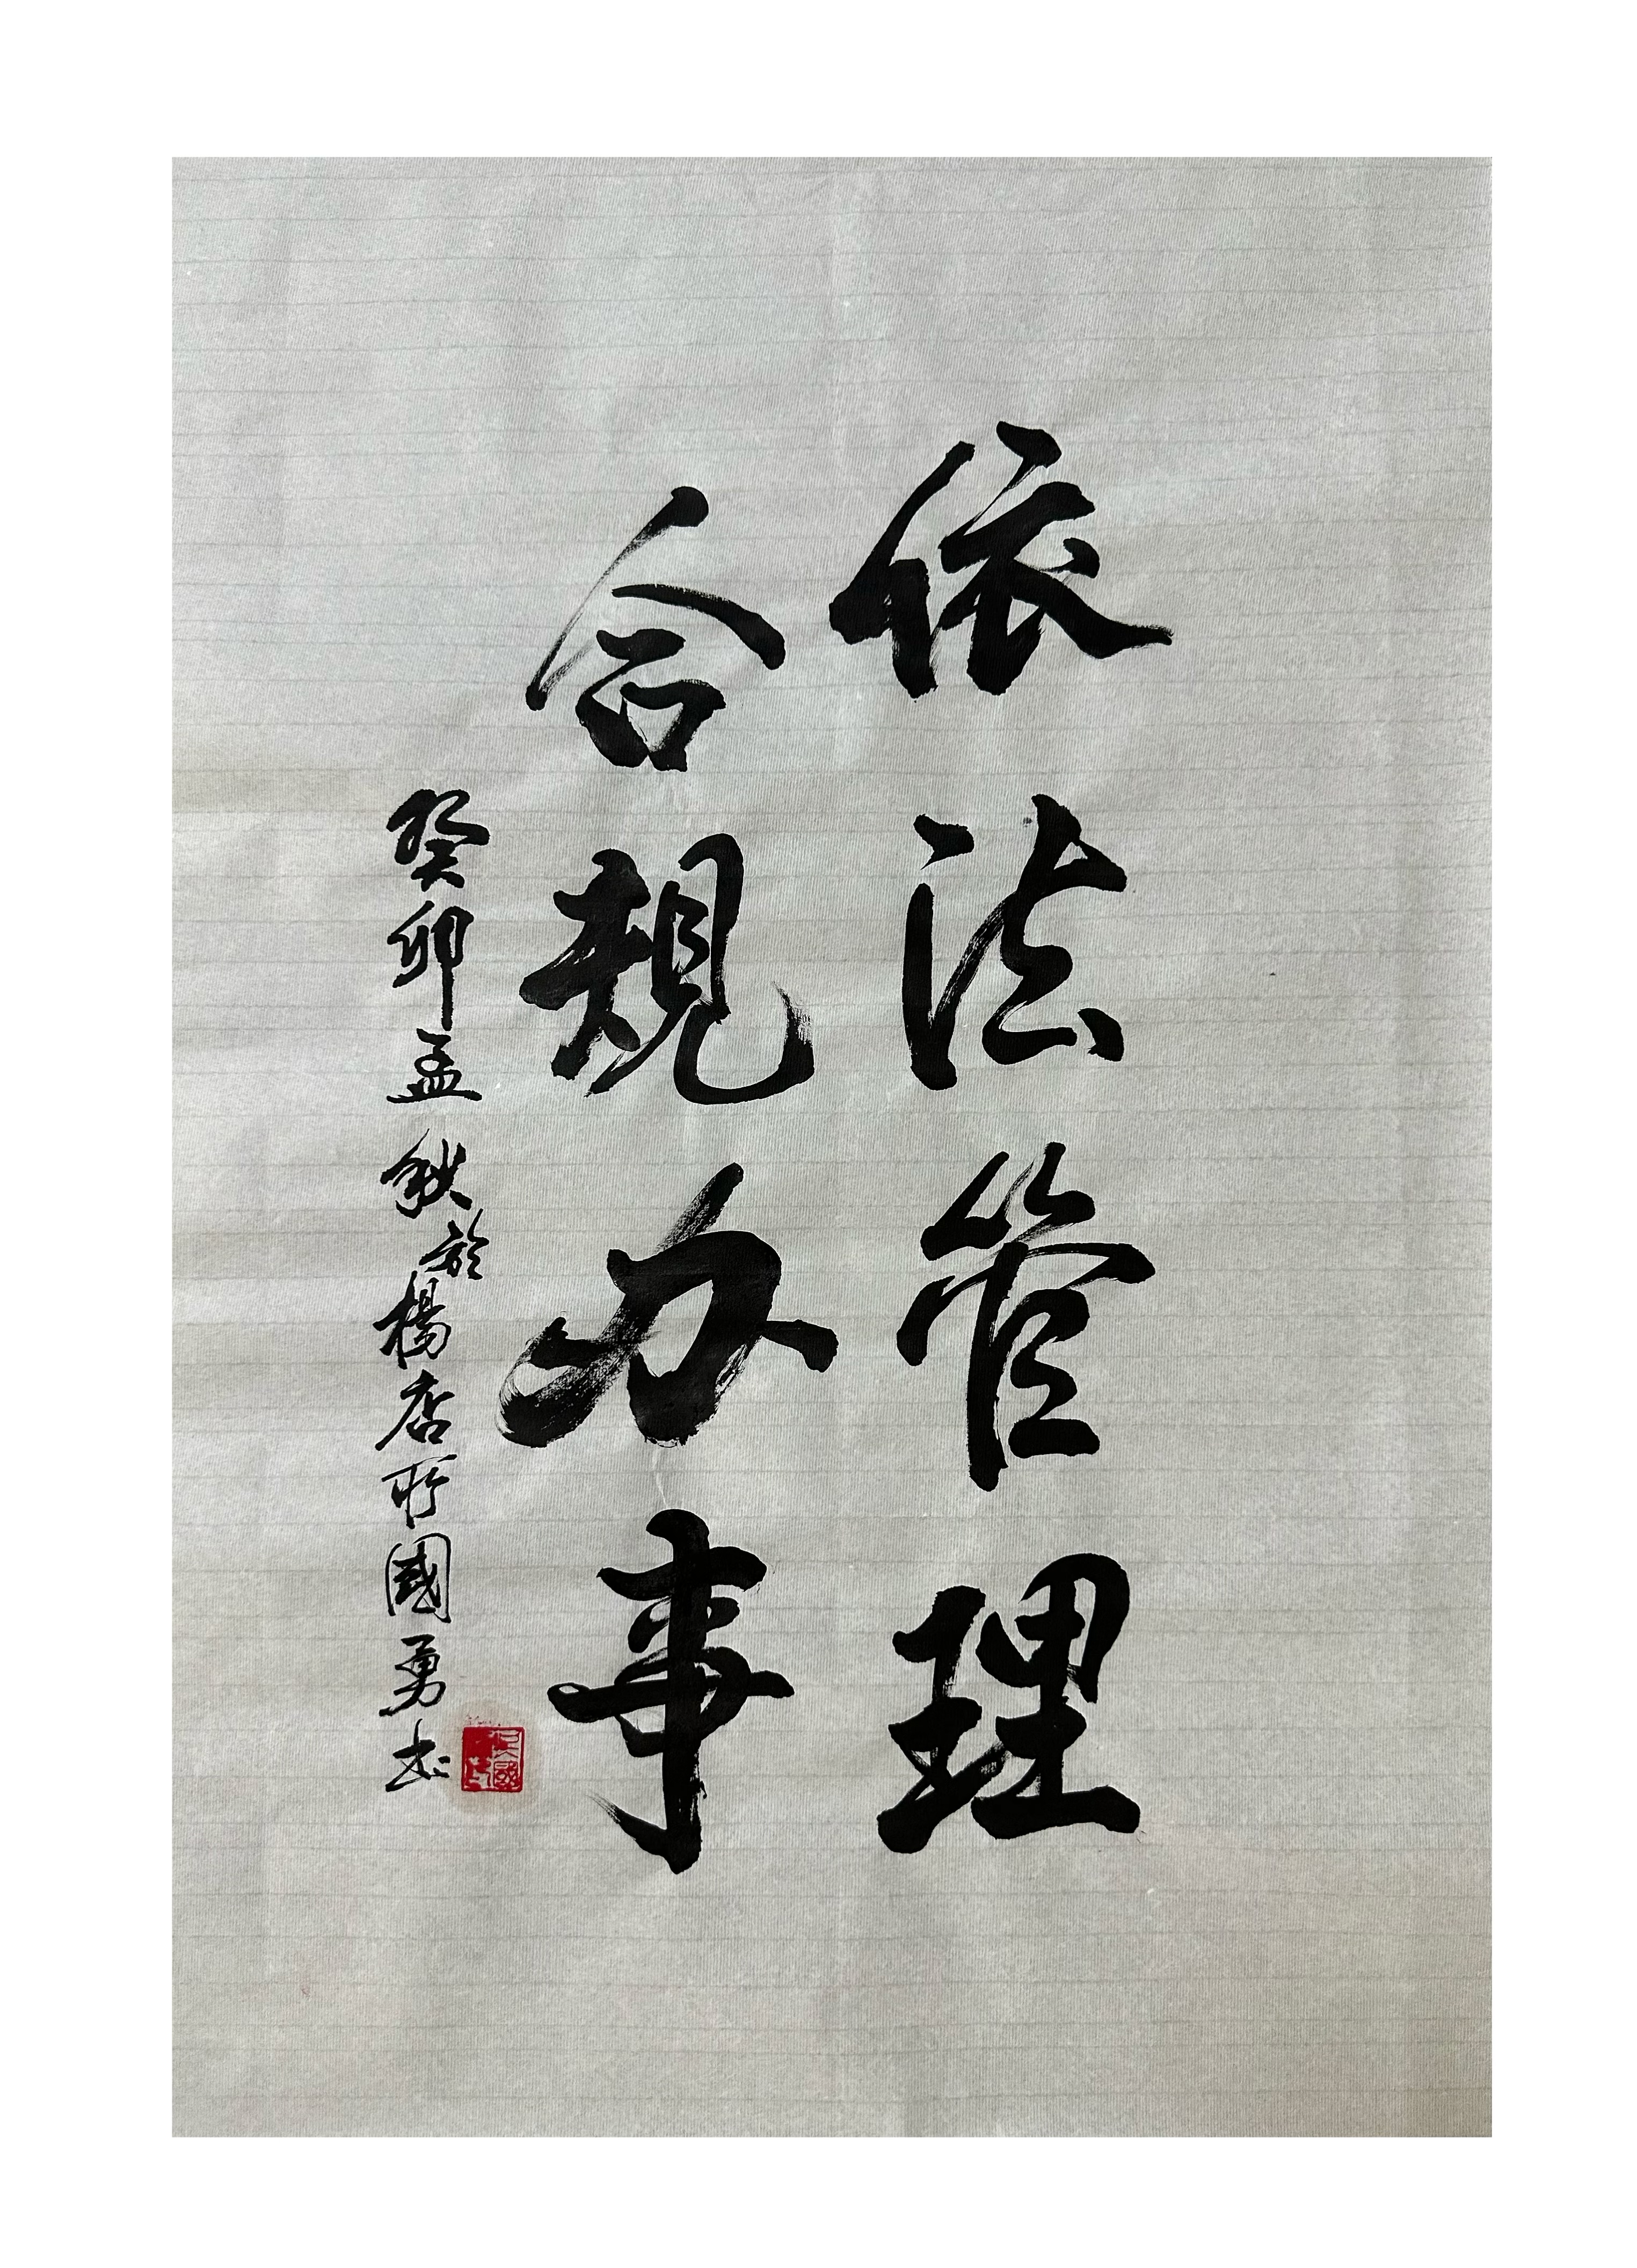 依法管理
合規办事
癸卯孟秋於楊店所國勇书